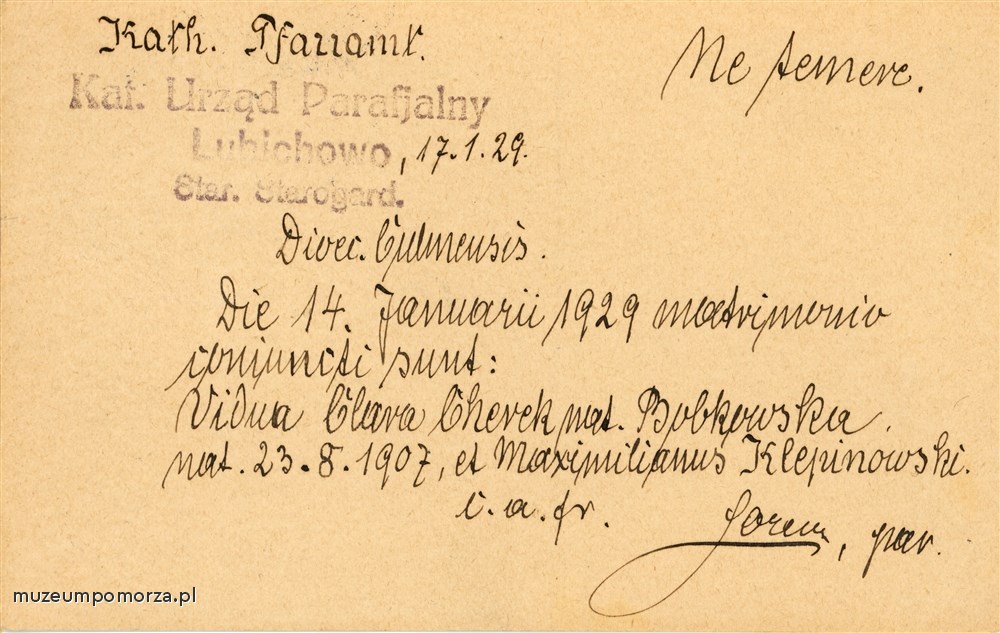 Kath. Pfarramt.
Ne temere.
Kat. Urząd Parafjalny
Lubichowo, 17.1.29.
Star. Starogard.
Dioec. Culmensis.
Die 14. Januarii 1929 matrimonio
conjuncti sunt:
Vidua Clara Cherek nat. Bobkowska.
nat. 23.8.1907, et Maximilianus Klepinowski.
i. a. fr.
, par.
muzeumpomorza.pl